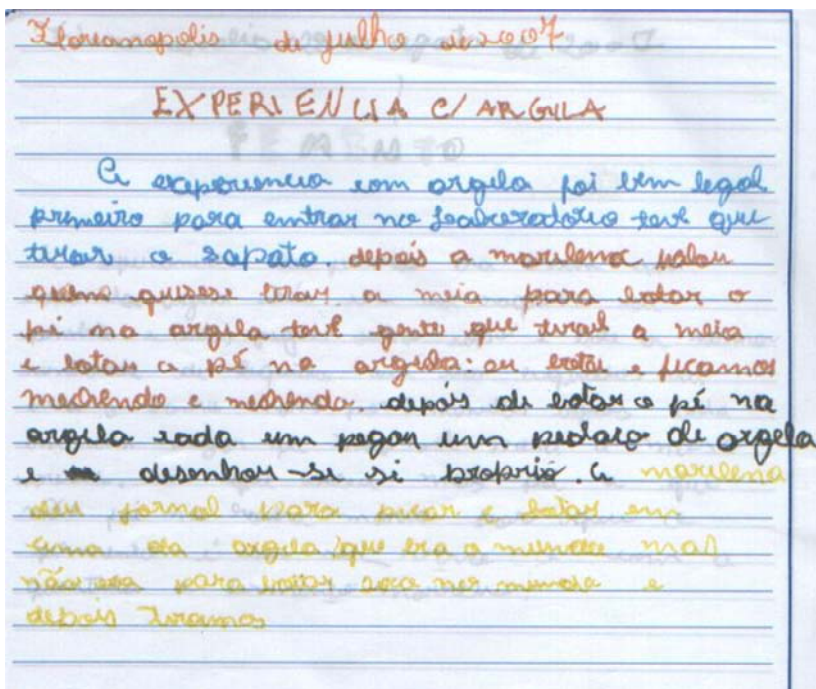 Florianopolis de julho de 2007
EXPERIENCIA C/ ARGILA
A experiencia com argila foi bem legal
primeiro para entrar no teve que
tirar o sapato. depois a marilena falou
quem quisese tirar a meia para botar o
pé na argila teve gente que tirou a meia
e botou o pé na argila: eu botei e ficamos
mechendo e mechendo. depois de botar o pé na
argila cada um pegou um pedaço de argela
e desenhou-se si proprio. a marilena
deu jornal para picar e botar em
cima da argila que era o mas
não era para botar e
depois tiramos